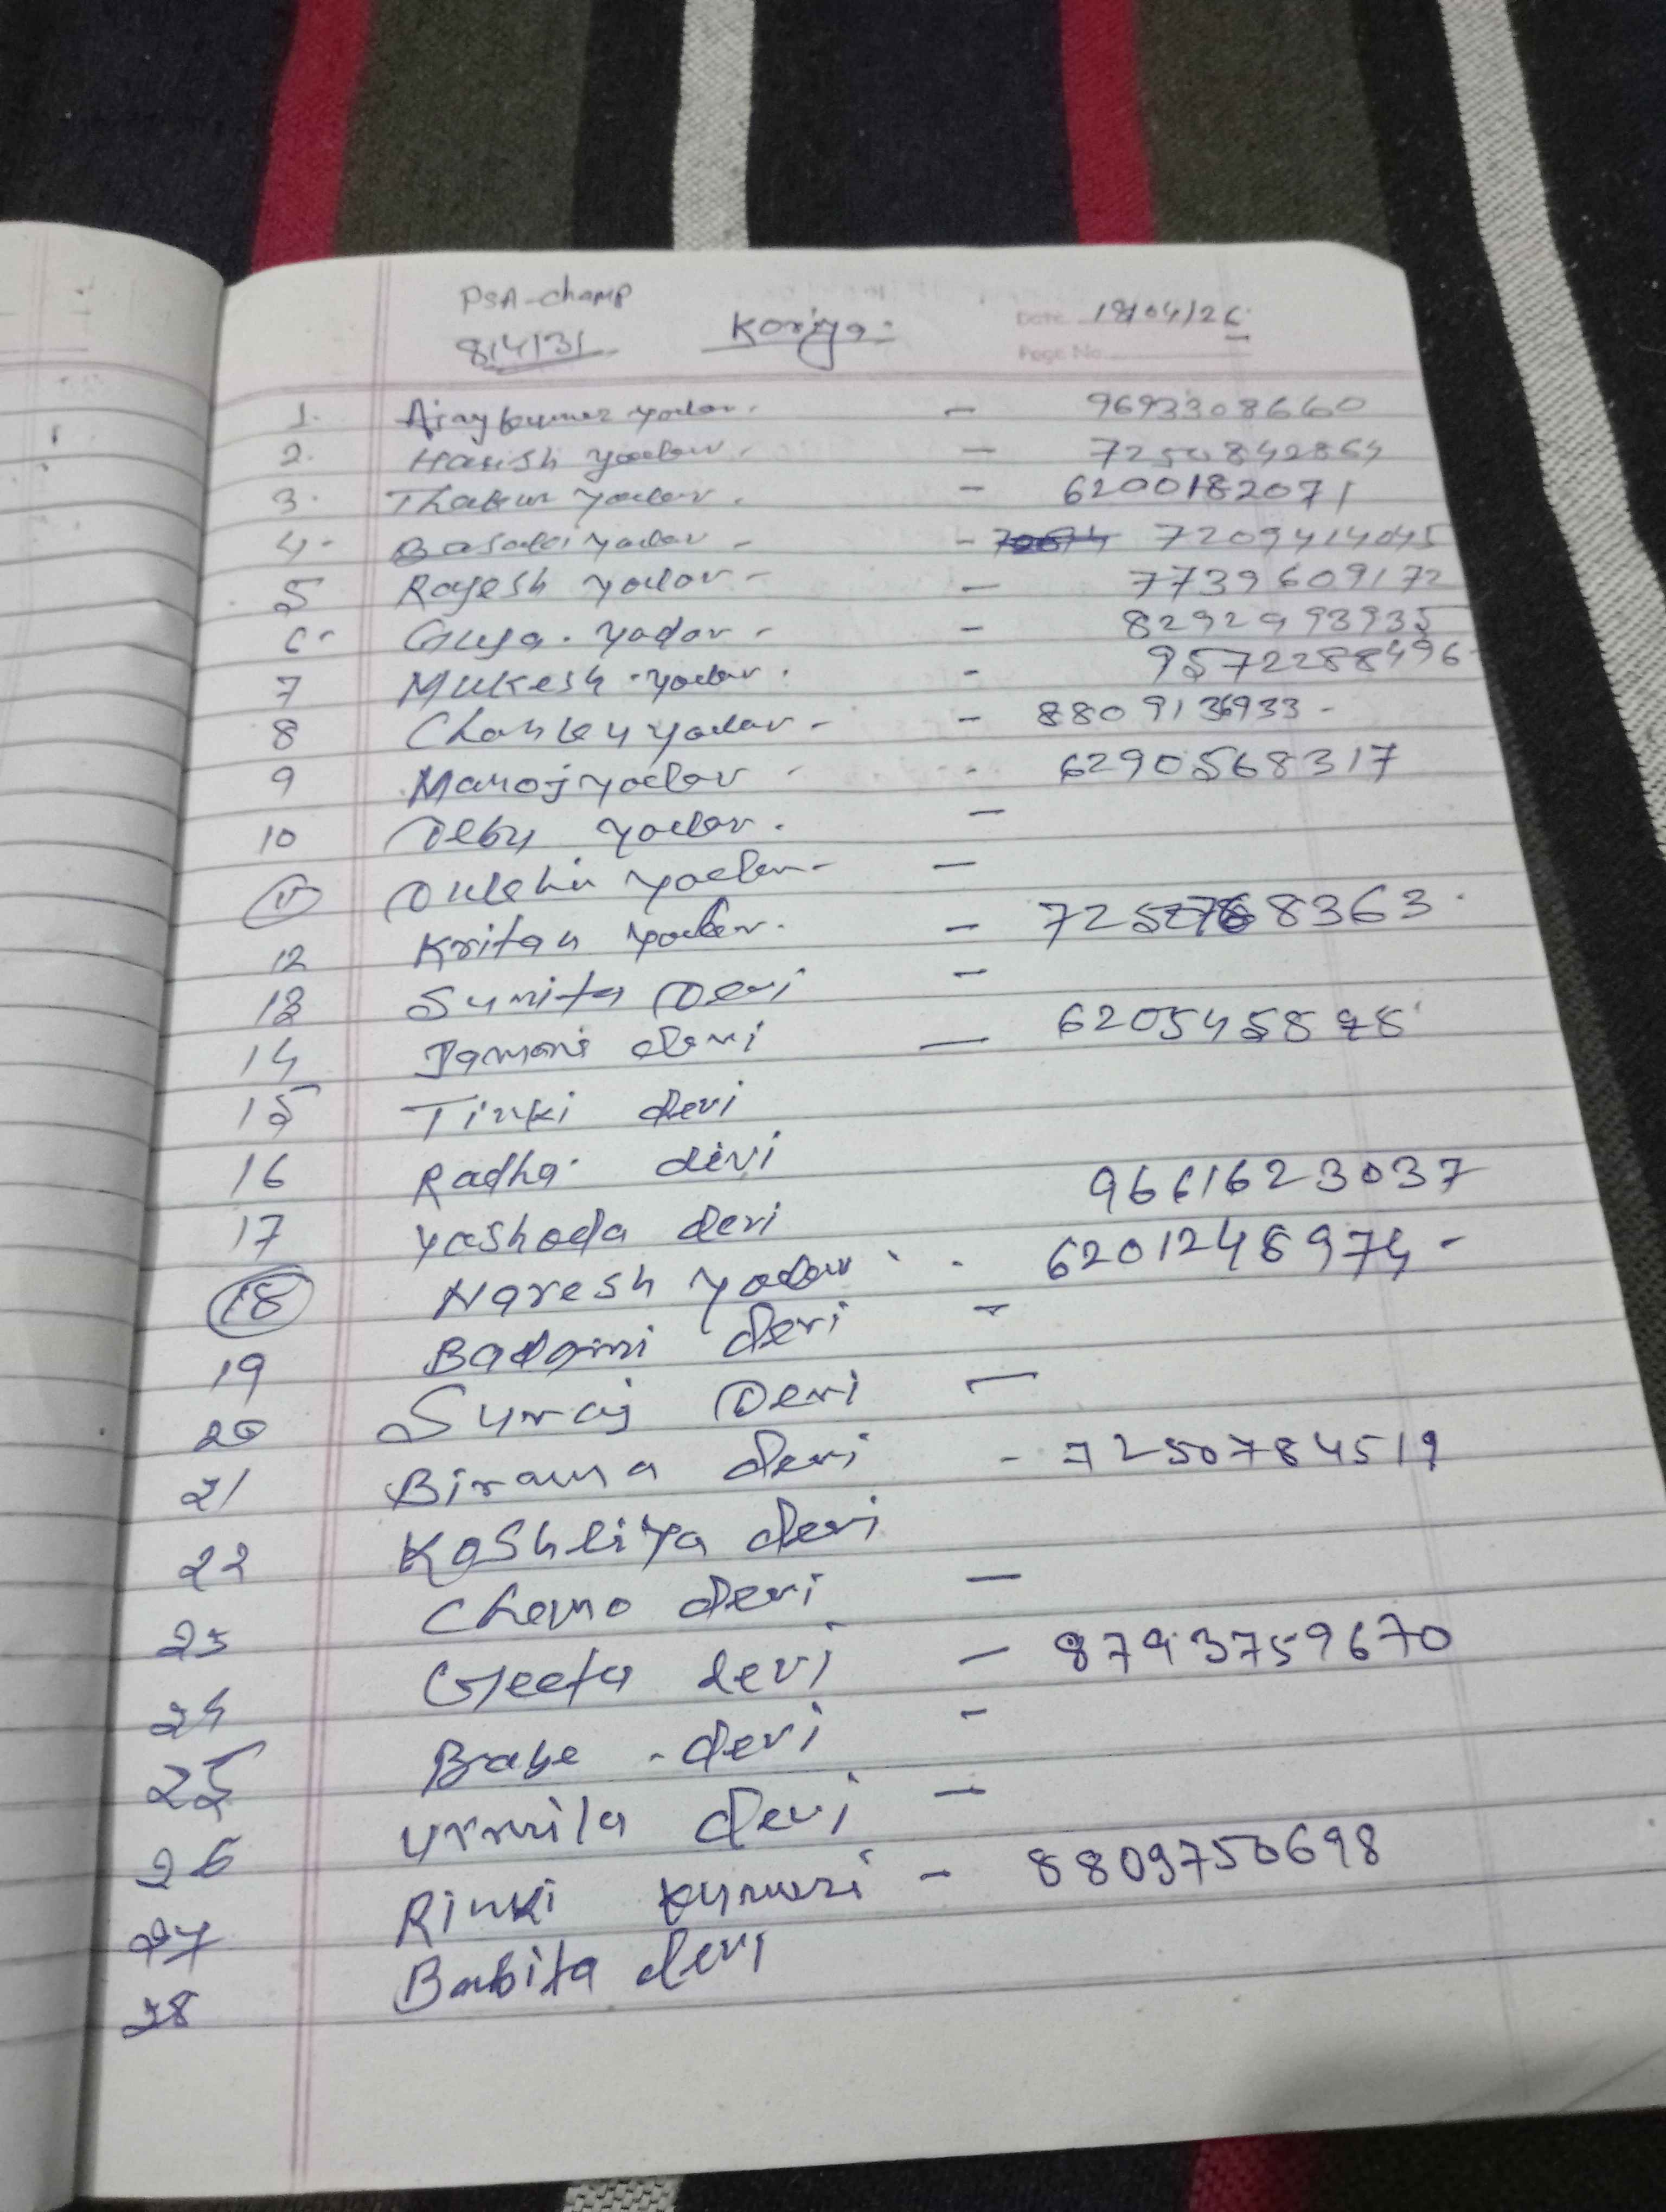 PSA-champ
814131 Koriya: Date 18/04/26
Page No.
1. Ajay kumar yadav. - 9693308660
2. Harish yadav. - 7250842864
3. Thakur yadav. - 6200182071
4. yadav - - 7209414045
5 Rajesh yadav - - 7739609172
6. yadav - - 8292993935
7 Mukesh yadav. - 9572288496
8 yadav - - 8809136933 -
9 Manoj yadav - 6290568317
10 Deby yadav. -
11 yadav - -
12 Kritan yadav. - 8363
13 Sunita Devi -
14 devi - 6205458
15 Tinki devi
16 Radha devi
17 Yashoda devi 9661623037
18 Naresh yadav 6201248974 -
19 Badami devi -
20 Suraj Devi -
21 devi - 7250784519
22 Koshliya devi
23 Chemo devi -
24 Geeta devi - 8793759670
25 devi -
26 Urmila devi -
27 Rinki kumari - 8809750698
28 Babita devi